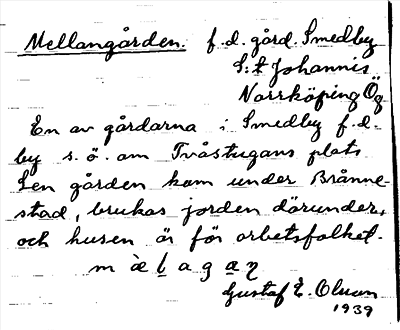 Mellangården. f.d. gård. Smedby
S:t Johannis
Norrköping Ög
En av gårdarna i Smedby f.d.
by s.ö. om Tvåstugans plats
Sen gården kom under Brånne-
stad, brukas jorden därunder,
och husen är för arbetsfolket.
m æ̀ l a g a ŋ
Gustaf E. Olsson
1939